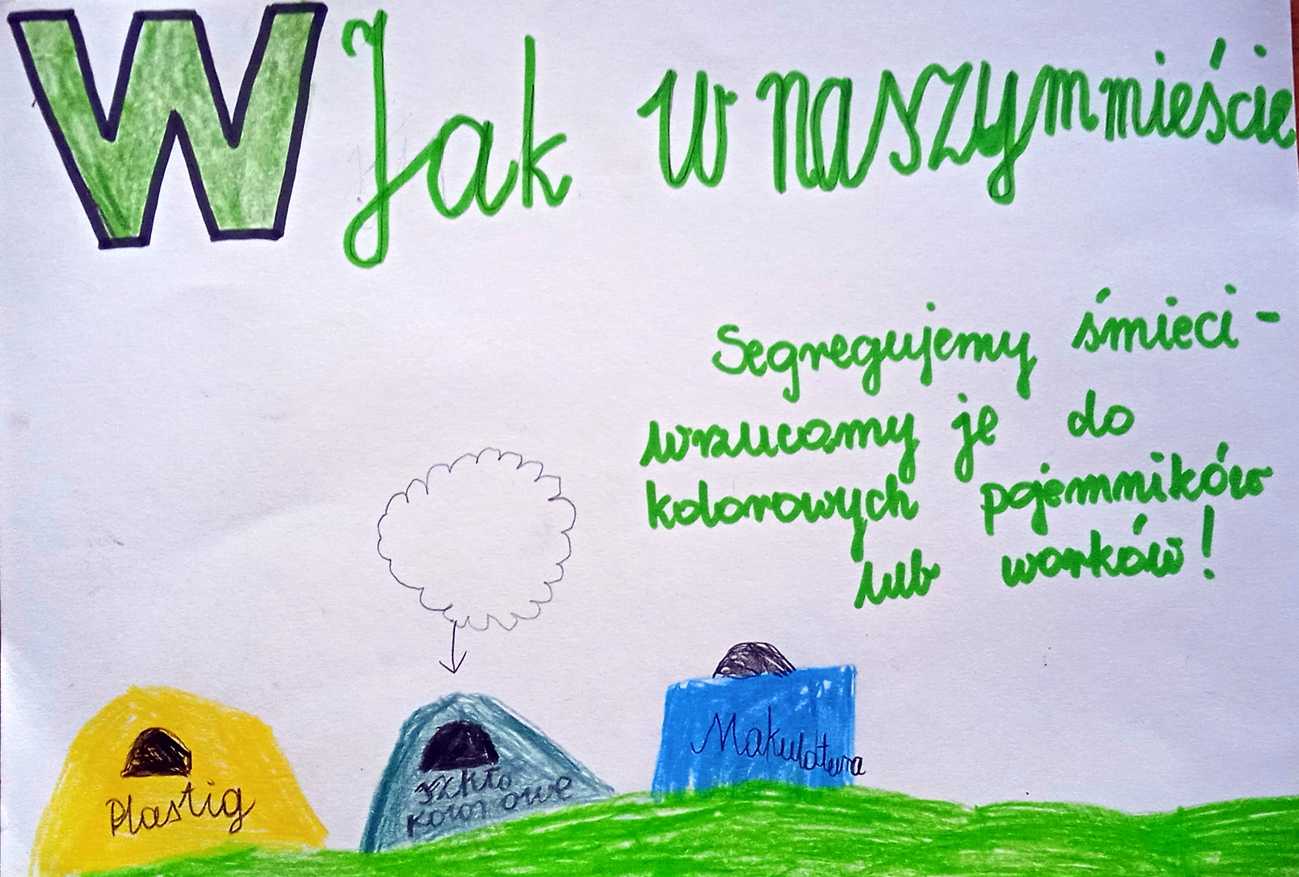 W Jak w naszym mieście
Segregujemy śmieci -
wrzucamy je do
kolorowych pojemników
lub worków!
Plastig
Szkło
kolorowe
Makulatura